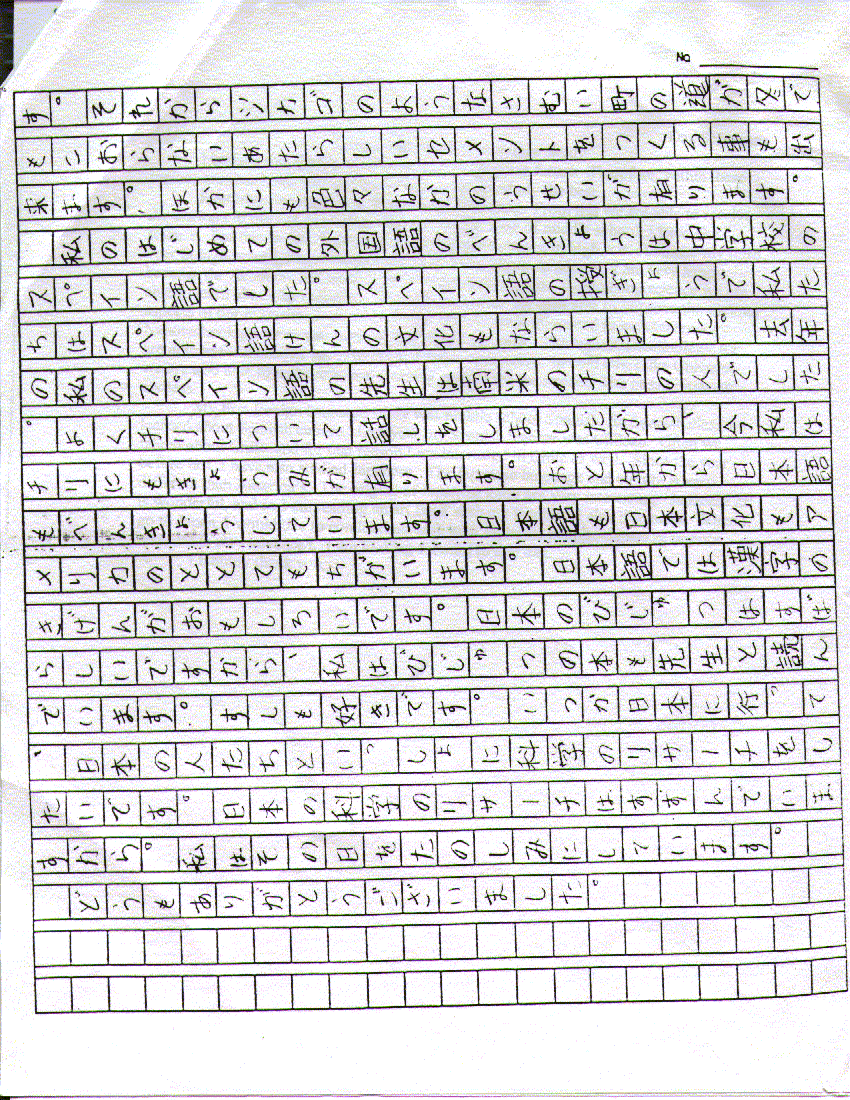 No
す。それからシカゴのようなさむい町の道が冬で
もこおらないあたらしいセメントをつくる事も出
来ます。ほかにも色々なかのうせいが有ります。
私のはじめての外国語のべんきょうは中学校の
スペイン語でした。スペイン語の授ぎょうで私た
ちはスペイン語けんの文化もならいました。去年
の私のスペイン語の先生は南米のチリの人でした
。よくチリについて話しをしましたから、今私は
チリにもきょうみが有ります。おと年から日本語
もべんきょうしています。日本語も日本文化もア
メリカのととてもちがいます。日本語では漢字の
きげんがおもしろいです。日本のびじゅつはすば
らしいですから、私はびじゅつの本も先生と読ん
でいます。すしも好きです。いつか日本に行って
、日本の人たちといっしょに科学のリサーチをし
たいです。日本の科学のリサーチはすすんでいま
すから。私はその日をたのしみにしています。
どうもありがとうございました。